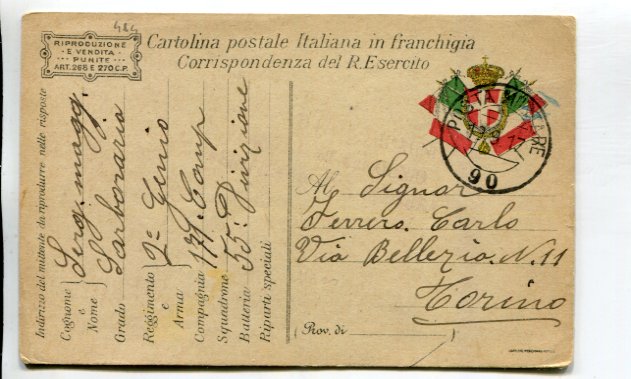 484
RIPRODUZIONE
E VENDITA
PUNITE
ART. 268 E 270 C.P.
Cartolina postale Italiana in franchigia
Corrispondenza del R. Esercito
Indirizzo del mittente da riprodurre nelle risposte
Cognome e Nome
Serg. magg.
Grado
Reggimento e Arma
2º Genio
Compagnia
Squadrone
Batteria
55ª Divizione
Riparti speciali
POSTA MILITARE
90
Al Signor
Ferrero Carlo
Via Bellezia N. 11
Torino
Prov. di